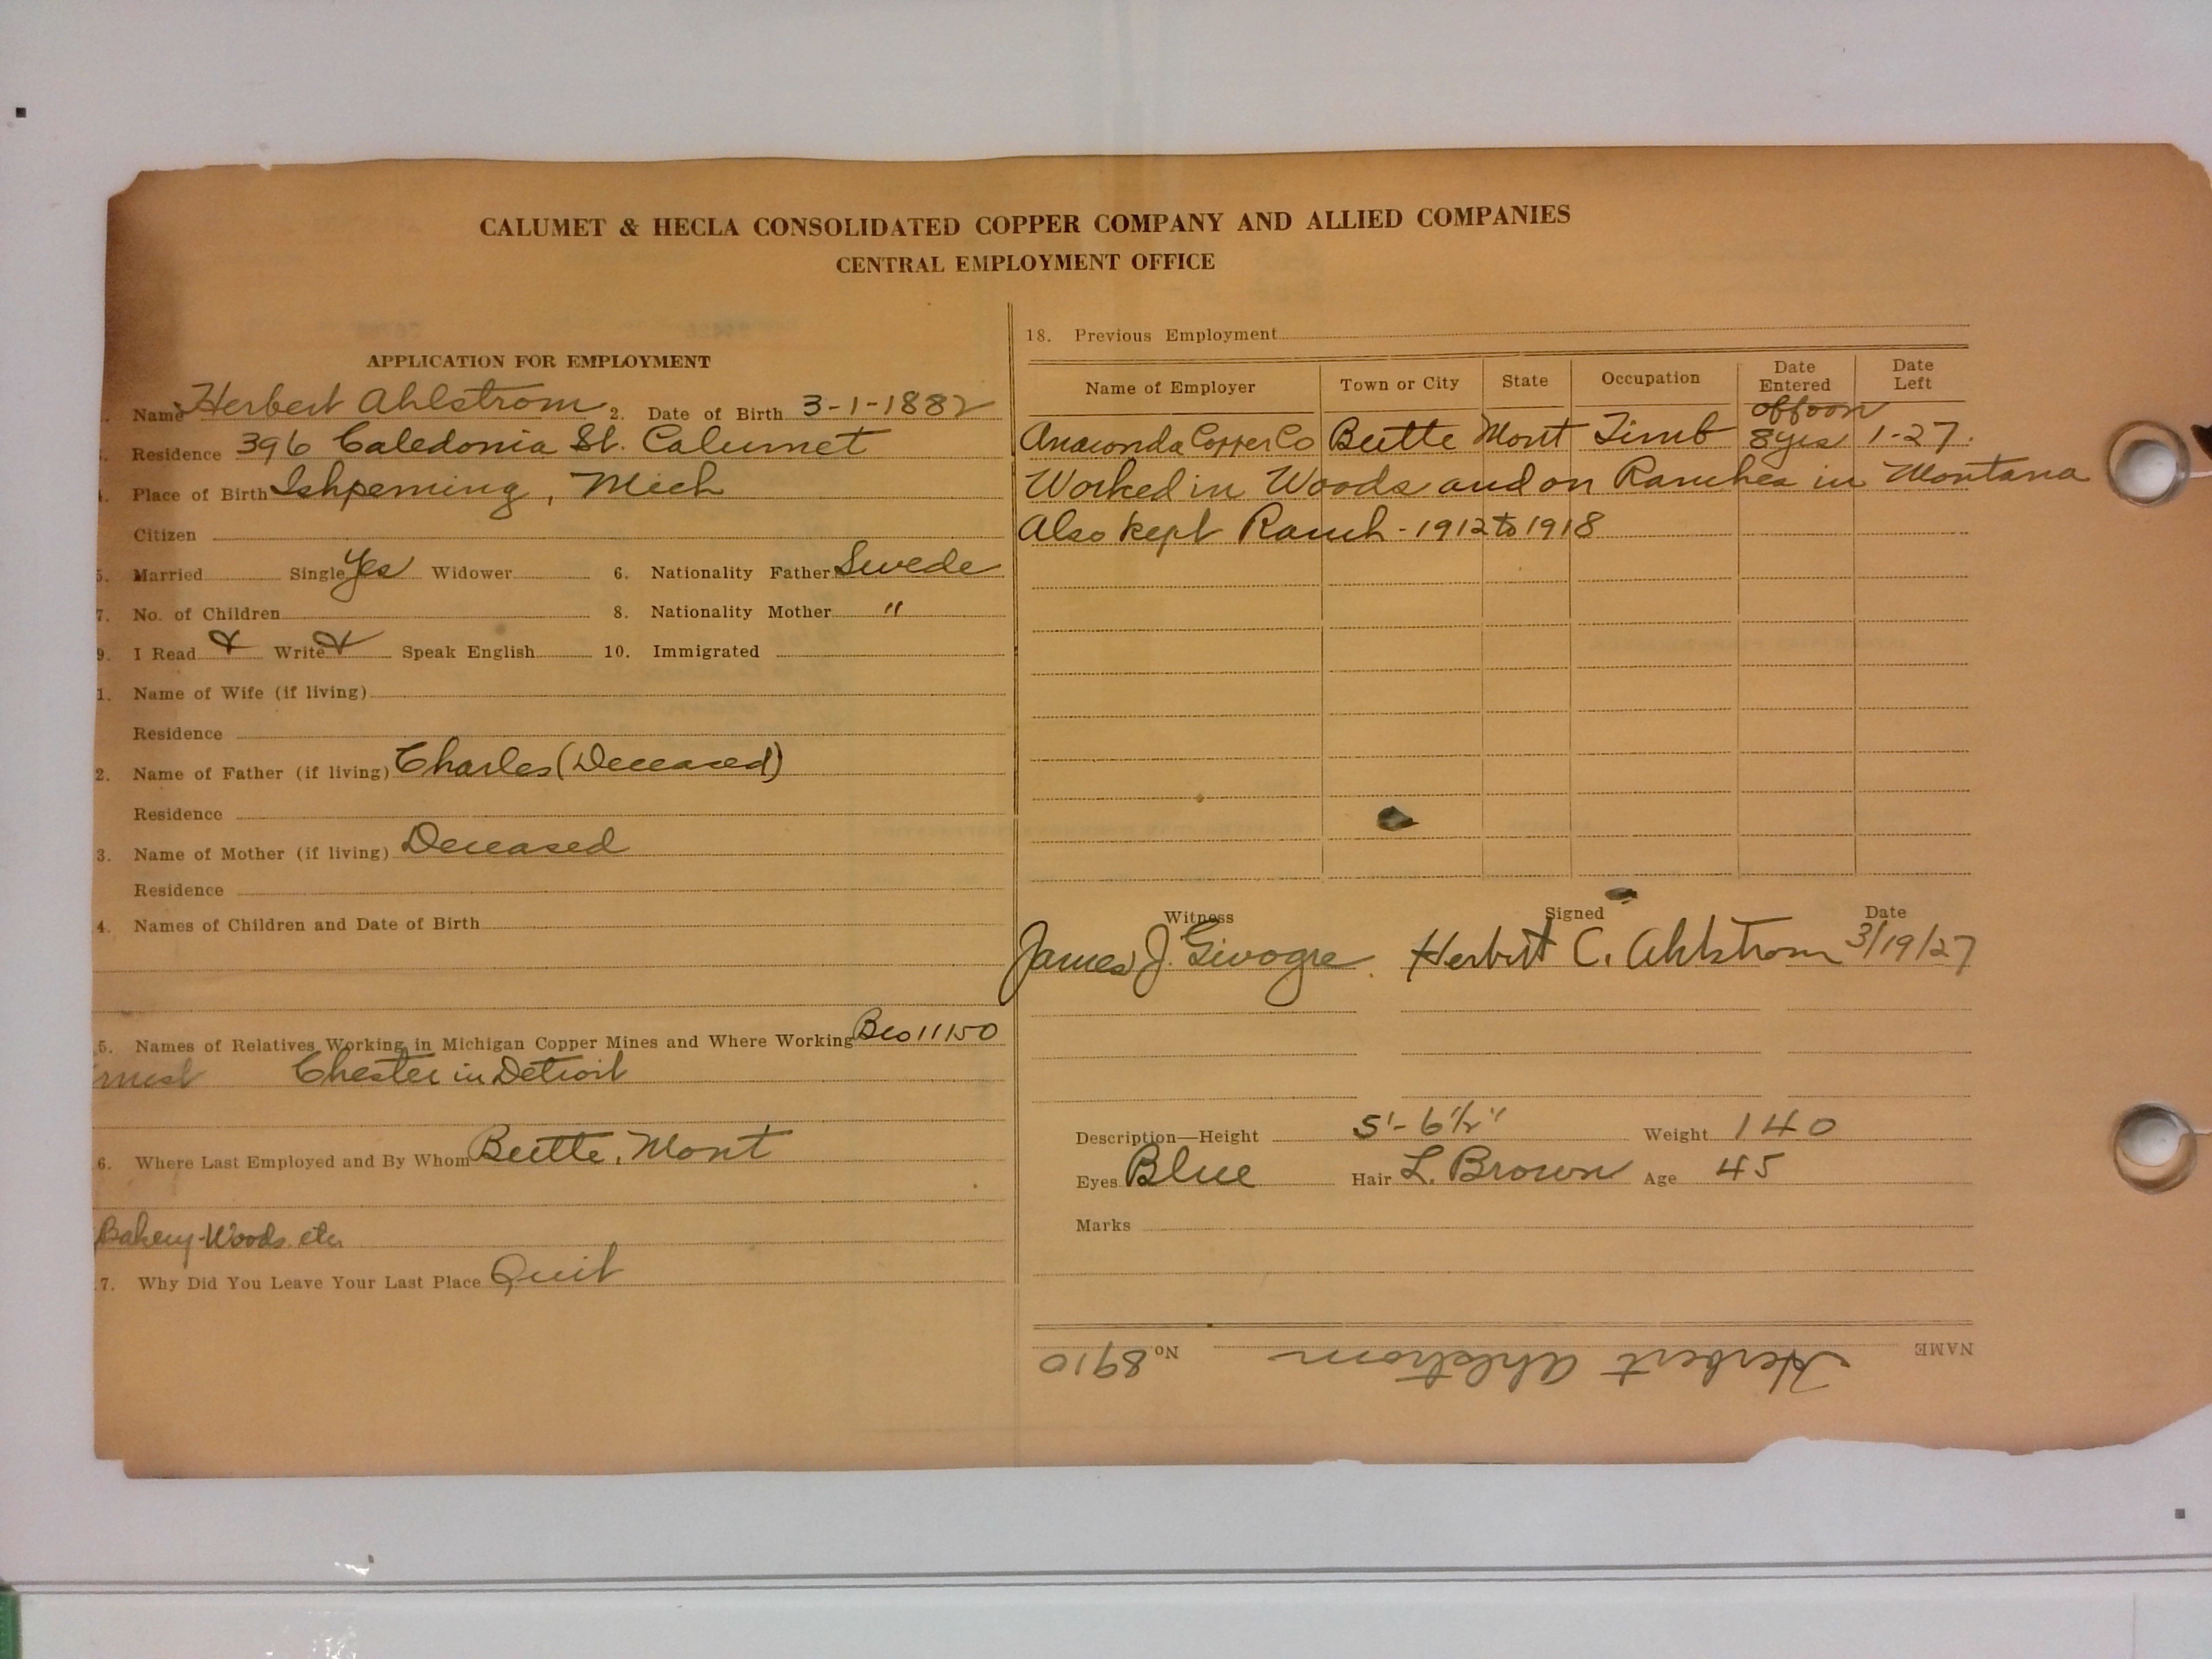 CALUMET & HECLA CONSOLIDATED COPPER COMPANY AND ALLIED COMPANIES
CENTRAL EMPLOYMENT OFFICE
APPLICATION FOR EMPLOYMENT
Name Herbert Ahlstrom 2. Date of Birth 3-1-1882
Residence 396 Caledonia St. Calumet
Place of Birth Ishpeming, Mich
Citizen
5. Married Single Yes Widower 6. Nationality Father Swede
7. No. of Children 8. Nationality Mother "
9. I Read Write Speak English 10. Immigrated
1. Name of Wife (if living)
Residence
2. Name of Father (if living) Charles (Deceased)
Residence
3. Name of Mother (if living) Deceased
Residence
4. Names of Children and Date of Birth
5. Names of Relatives Working in Michigan Copper Mines and Where Working Bro 11150
Chester in Detroit
6. Where Last Employed and By Whom Butte, Mont
Bakery-Woods etc
7. Why Did You Leave Your Last Place Quit
18. Previous Employment
Name of Employer Town or City State Occupation Date Entered Date Left
off & on
Anaconda Copper Co Butte Mont Timb 8 yrs 1-27.
Worked in Woods and on Ranches in Montana
Also kept Ranch - 1912 to 1918
Witness Signed Date
James J. Herbert C. Ahlstrom 3/19/27
Description—Height 5'-6½" Weight 140
Eyes Blue Hair L. Brown Age 45
Marks
NAME Herbert Ahlstrom No. 8910